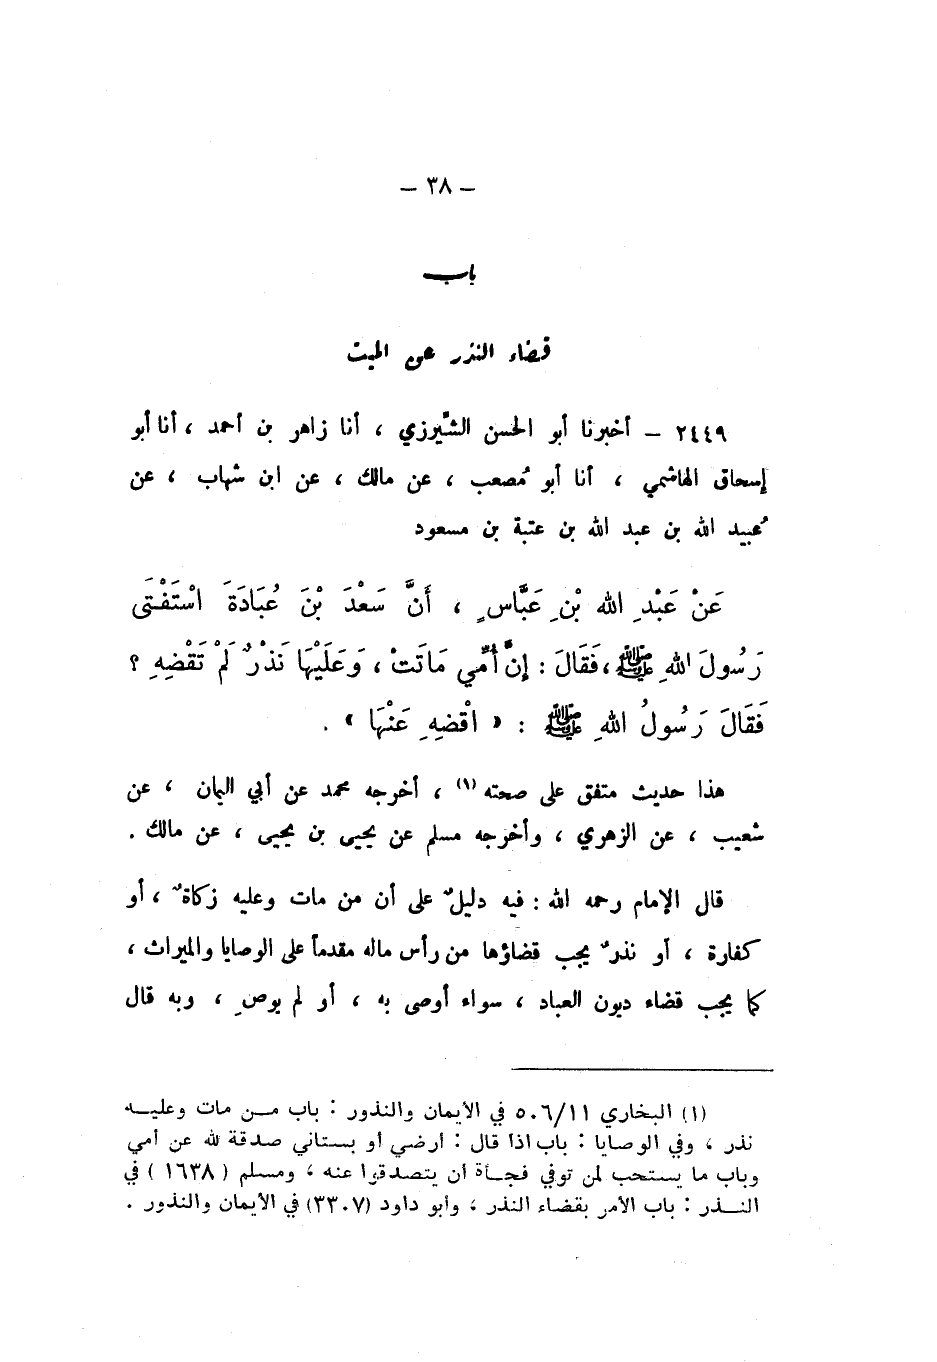 – ٣٨ –
باب
قضاء النذر عن الميت
٢٤٤٩ – أخبرنا أبو الحسن الشِّيرزي ، أنا زاهر بن أحمد ، أنا أبو
إسحاق الهاشمي ، أنا أبو مُصعب ، عن مالك ، عن ابن شهاب ، عن
عُبيد الله بن عبد الله بن عتبة بن مسعود
عَنْ عَبْدِ اللهِ بْنِ عَبَّاسٍ ، أَنَّ سَعْدَ بْنَ عُبَادَةَ اسْتَفْتَى
رَسُولَ اللهِ ﷺ ، فَقَالَ : إِنَّ أُمِّي مَاتَتْ ، وَعَلَيْهَا نَذْرٌ لَمْ تَقْضِهِ ؟
فَقَالَ رَسُولُ اللهِ ﷺ : « اقْضِهِ عَنْهَا » .
هذا حديث متفق على صحته (١) ، أخرجه محمد عن أبي اليمان ، عن
شعيب ، عن الزهري ، وأخرجه مسلم عن يحيى بن يحيى ، عن مالك .
قال الإمام رحمه الله : فيه دليلٌ على أن من مات وعليه زكاةٌ ، أو
كفارة ، أو نذرٌ يجب قضاؤها من رأس ماله مقدماً على الوصايا والميراث ،
كما يجب قضاء ديون العباد ، سواء أوصى به ، أو لم يوصِ ، وبه قال
(١) البخاري ٥٠٦/١١ في الأيمان والنذور : باب مـن مات وعليـه
نذر ، وفي الوصايا : باب اذا قال : أرضي أو بستاني صدقة لله عن أمي
وباب ما يستحب لمن توفي فجـأة أن يتصدقوا عنه ، ومسلم ( ١٦٣٨ ) في
النـذر : باب الأمر بقضاء النذر ، وأبو داود (٣٣٠٧) في الأيمان والنذور .